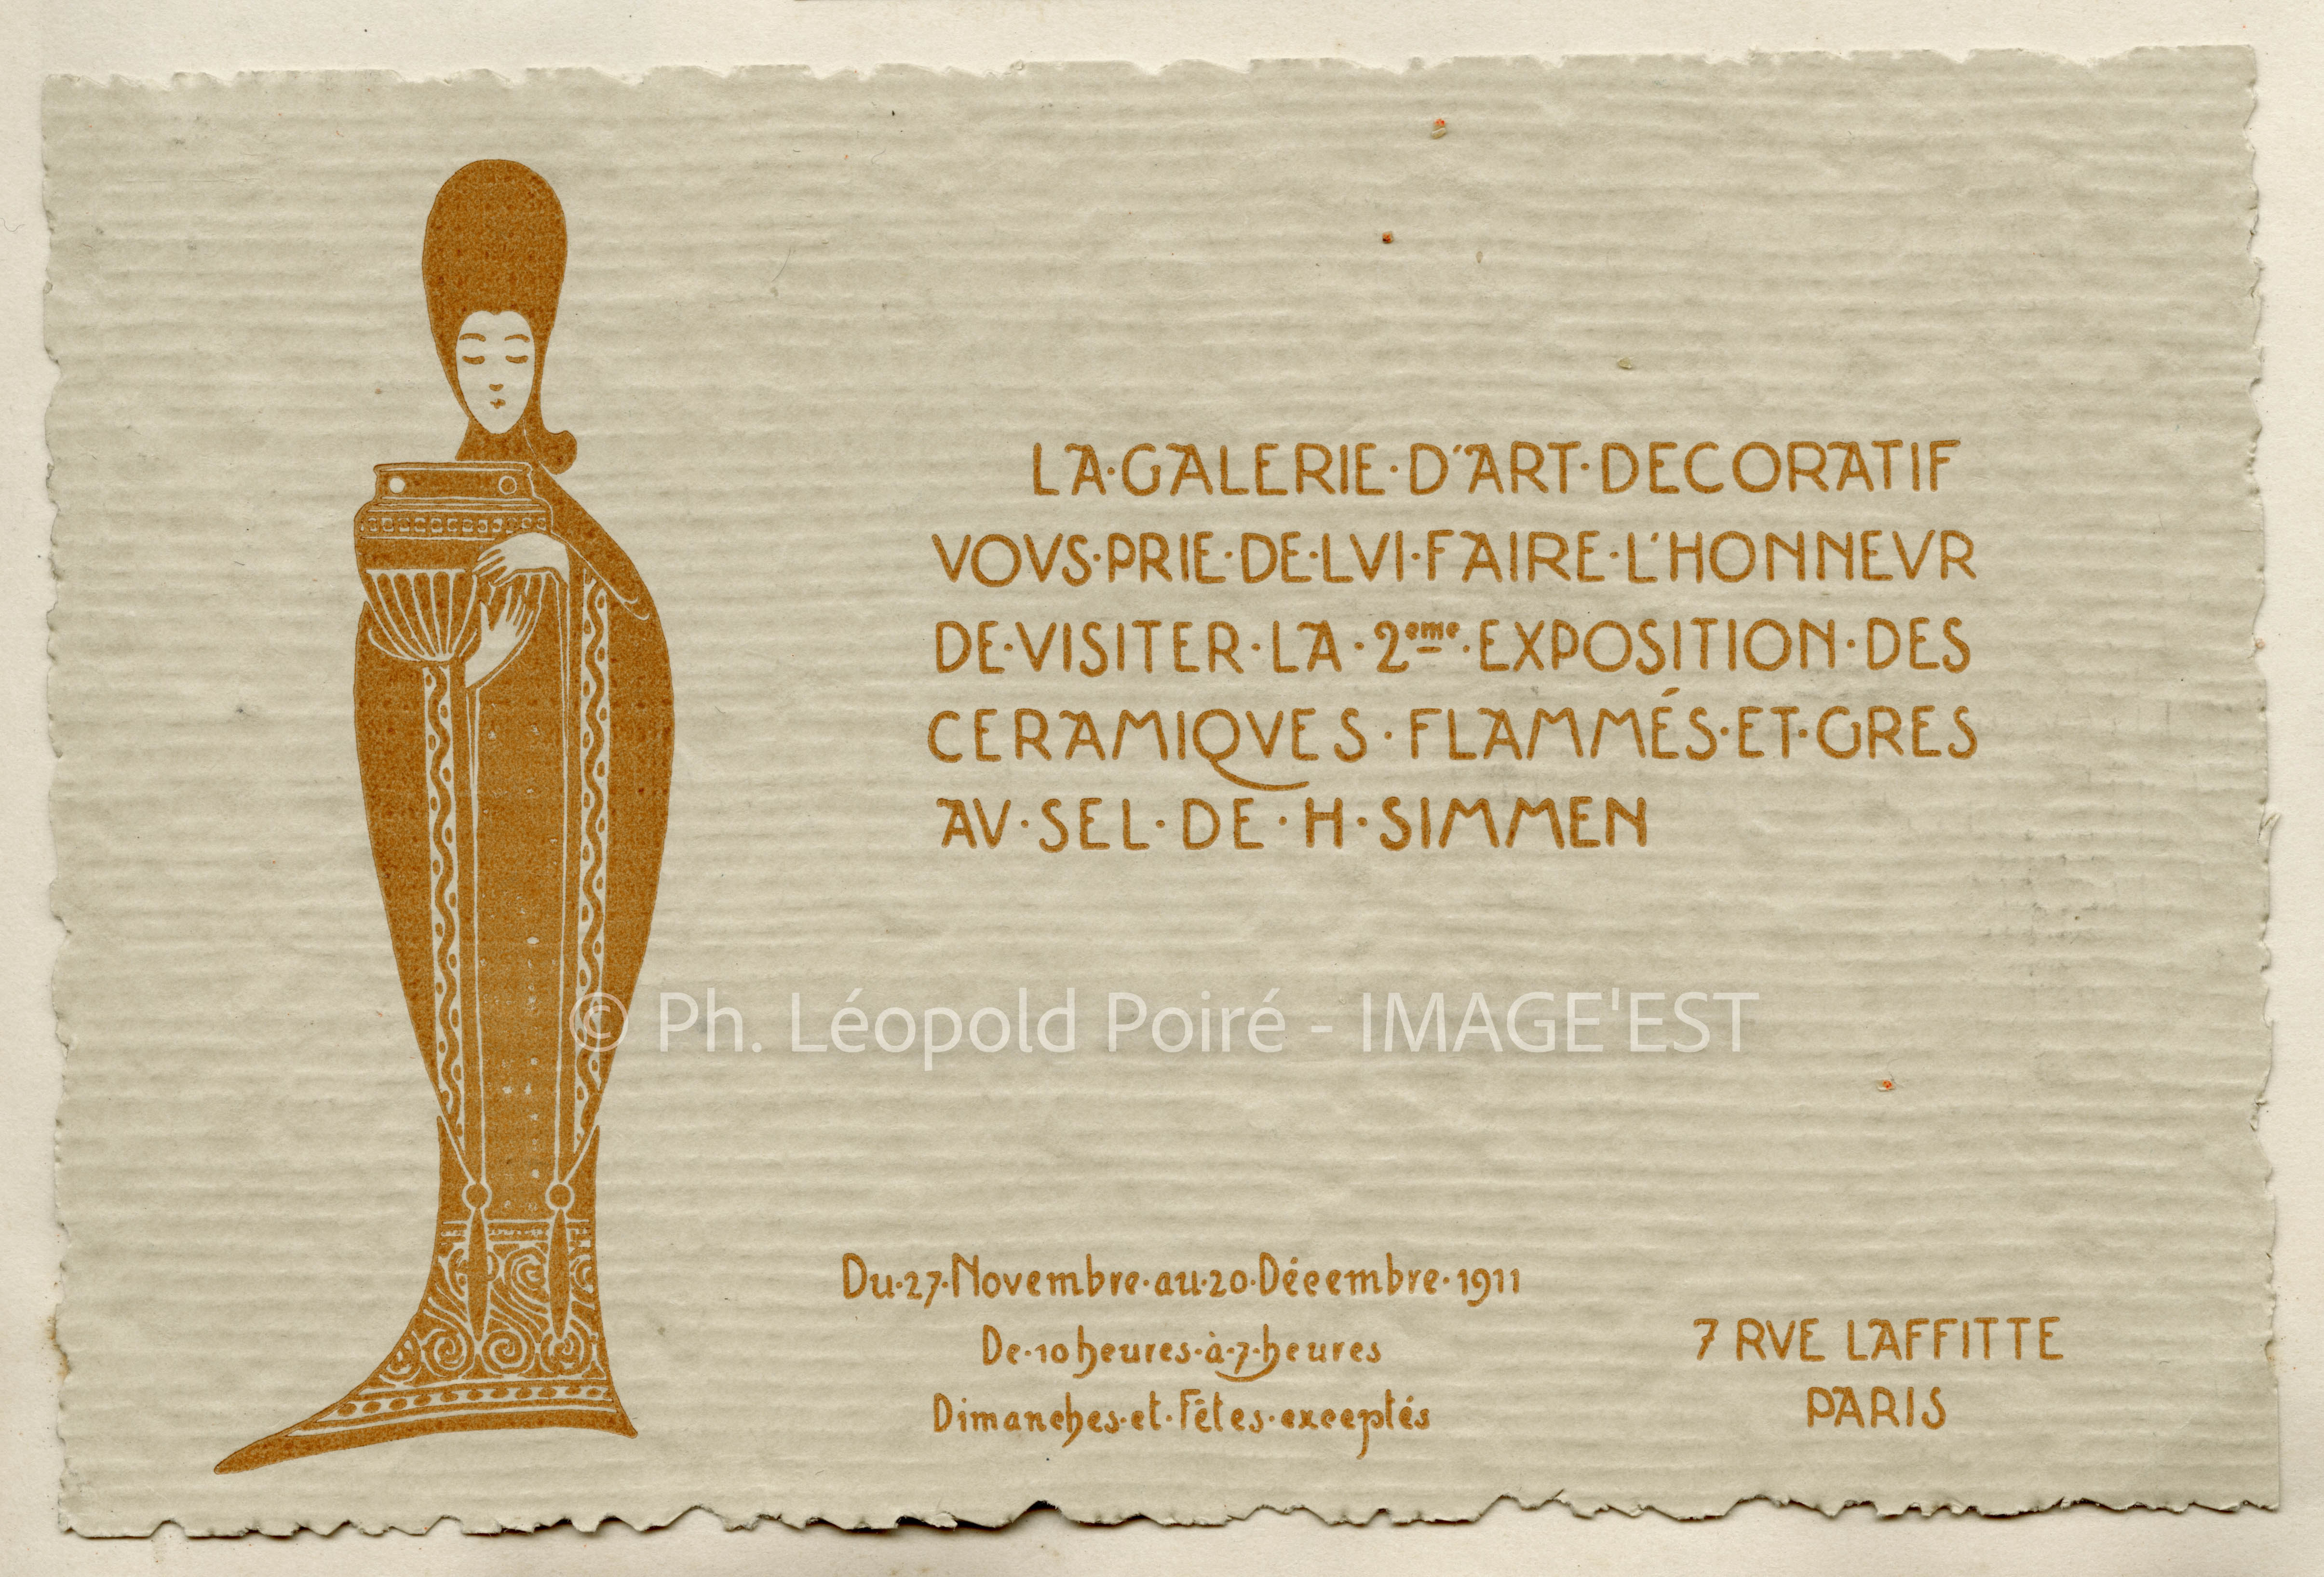 LA·GALERIE·D'ART·DECORATIF
VOVS·PRIE·DE·LVI·FAIRE·L'HONNEVR
DE·VISITER·LA·2eme·EXPOSITION·DES
CERAMIQVES·FLAMMÉS·ET·GRES
AV·SEL·DE·H·SIMMEN
© Ph. Léopold Poiré - IMAGE'EST
Du·27·Novembre·au·20·Décembre·1911
De·10 heures·à·7·heures
Dimanches·et·Fêtes·exceptés
7 RVE LAFFITTE
PARIS